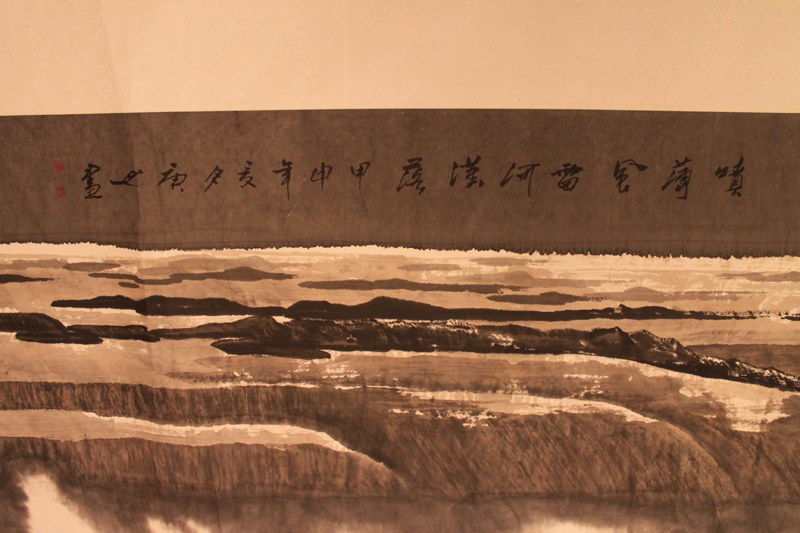 噴薄風雷河漢落甲申年亥夕庚也畫